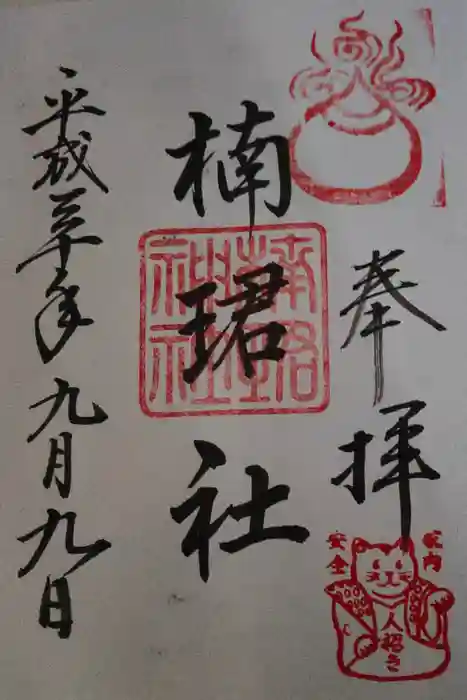 奉拝
楠珺社
楠珺社
平成三十年九月九日
家内
安全
人招き